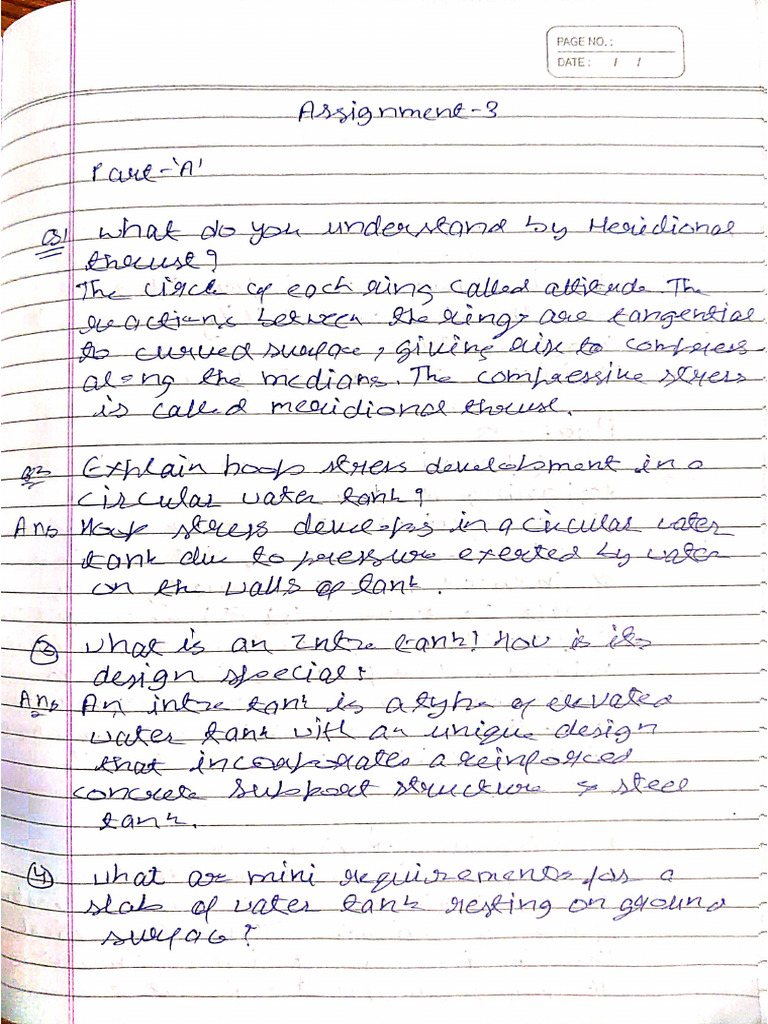 PAGE NO. :
DATE : / /
Assignment-3
Part-'A'
Q1 What do you understand by Meridional
thrust?
The circle of each ring called altitude. The
reactions between the rings are tangential
to curved surface, giving rise to compress
along the medians. The compressive stress
is called meridional thrust.
Q2 Explain hoop stress development in a
circular water tank?
Ans Hoop stress develops in a circular water
tank due to pressure exerted by water
on the walls of tank.
3 What is an Intze tank! How is its
design special?
Ans An intze tank is a type of elevated
water tank with an unique design
that incorporates a reinforced
concrete support structure & steel
tank.
4 What are mini requirements for a
slab of water tank resting on ground
surface?